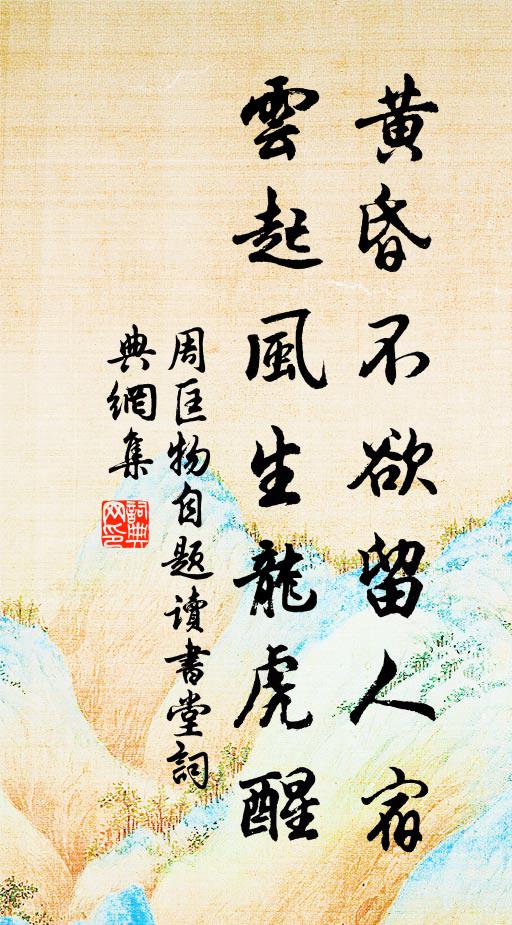 黃昏不欲留人宿
雲起風生龍虎醒
周匡物自題讀書堂詞
典網集
詞典
网印